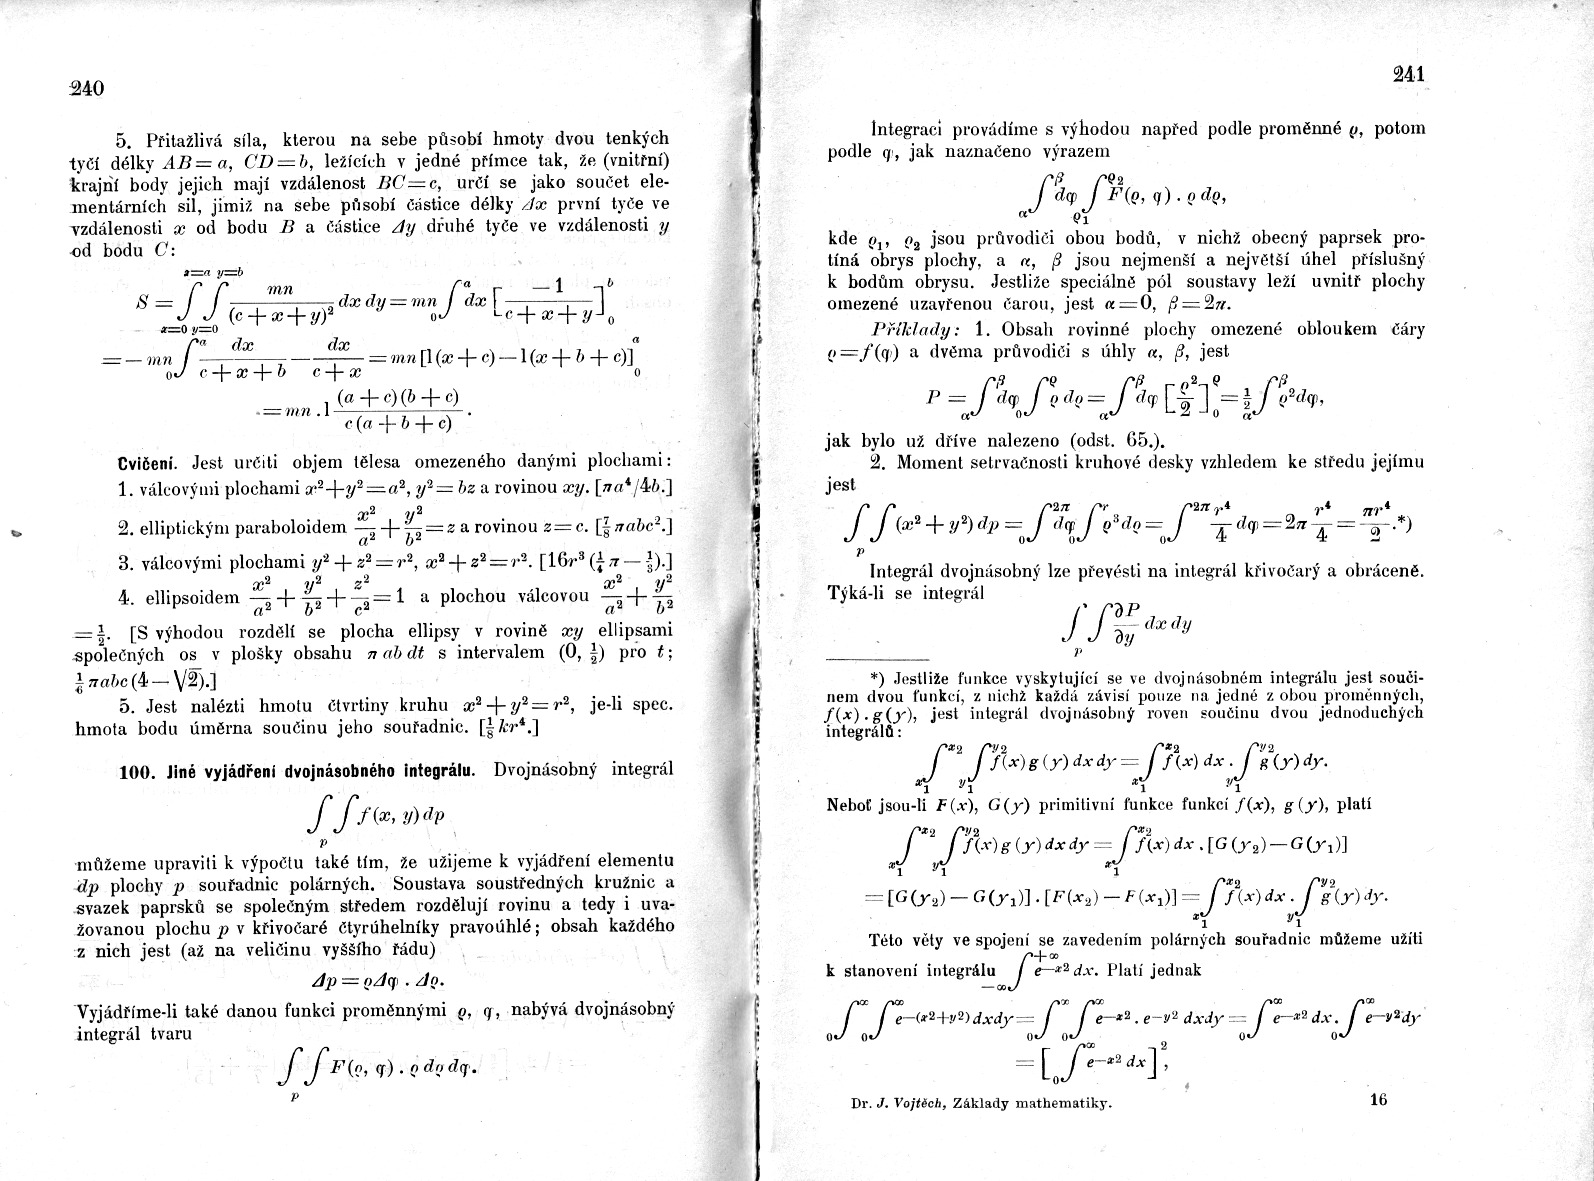 240
5. Přitažlivá síla, kterou na sebe působí hmoty dvou tenkých
tyčí délky AB = a, CD = b, ležících v jedné přímce tak, že (vnitřní)
krajní body jejich mají vzdálenost BC = c, určí se jako součet ele-
mentárních sil, jimiž na sebe působí částice délky Δx první tyče ve
vzdálenosti x od bodu B a částice Δy druhé tyče ve vzdálenosti y
od bodu C:
S = ∫_{x=0}^{x=a} ∫_{y=0}^{y=b} mn/(c + x + y)² dx dy = mn ₀∫^a dx [−1/(c + x + y)]₀^b
= − mn ₀∫^a dx/(c + x + b) − dx/(c + x) = mn [l (x + c) − l (x + b + c)]₀^a
= mn . l (a + c) (b + c)/(c (a + b + c)) .
Cvičení. Jest určiti objem tělesa omezeného danými plochami:
1. válcovými plochami x² + y² = a², y² = bz a rovinou xy. [πa⁴/4b.]
2. elliptickým paraboloidem x²/a² + y²/b² = z a rovinou z = c. [⅞ πabc².]
3. válcovými plochami y² + z² = r², x² + z² = r². [16r³ (¼ π − ⅓).]
4. ellipsoidem x²/a² + y²/b² + z²/c² = 1 a plochou válcovou x²/a² + y²/b²
= ½. [S výhodou rozdělí se plocha ellipsy v rovině xy ellipsami
společných os v plošky obsahu π ab dt s intervalem (0, ½) pro t;
⅙ πabc (4 − √2).]
5. Jest nalézti hmotu čtvrtiny kruhu x² + y² = r², je-li spec.
hmota bodu úměrna součinu jeho souřadnic. [⅛ kr⁴.]
100. Jiné vyjádření dvojnásobného integrálu. Dvojnásobný integrál
∫∫_p f (x, y) dp
můžeme upraviti k výpočtu také tím, že užijeme k vyjádření elementu
dp plochy p souřadnic polárných. Soustava soustředných kružnic a
svazek paprsků se společným středem rozdělují rovinu a tedy i uva-
žovanou plochu p v křivočaré čtyrúhelníky pravoúhlé; obsah každého
z nich jest (až na veličinu vyššího řádu)
Δp = ϱΔφ . Δϱ.
Vyjádříme-li také danou funkci proměnnými ϱ, φ, nabývá dvojnásobný
integrál tvaru
∫∫_p F (ϱ, φ) . ϱ dϱ dφ.
241
Integraci provádíme s výhodou napřed podle proměnné ϱ, potom
podle φ, jak naznačeno výrazem
α∫^β dφ ∫_{ϱ₁}^{ϱ₂} F (ϱ, φ) . ϱ dϱ,
kde ϱ₁, ϱ₂ jsou průvodiči obou bodů, v nichž obecný paprsek pro-
tíná obrys plochy, a α, β jsou nejmenší a největší úhel příslušný
k bodům obrysu. Jestliže speciálně pól soustavy leží uvnitř plochy
omezené uzavřenou čarou, jest α = 0, β = 2π.
Příklady: 1. Obsah rovinné plochy omezené obloukem čáry
ϱ = f (φ) a dvěma průvodiči s úhly α, β, jest
P = α∫^β dφ ₀∫^ϱ ϱ dϱ = α∫^β dφ [ϱ²/2]₀^ϱ = ½ α∫^β ϱ² dφ,
jak bylo už dříve nalezeno (odst. 65.).
2. Moment setrvačnosti kruhové desky vzhledem ke středu jejímu
jest
∫∫_p (x² + y²) dp = ₀∫^{2π} dφ ₀∫^r ϱ³ dϱ = ₀∫^{2π} r⁴/4 dφ = 2π r⁴/4 = πr⁴/2 .*)
Integrál dvojnásobný lze převésti na integrál křivočarý a obráceně.
Týká-li se integrál
∫∫_p ∂P/∂y dx dy
*) Jestliže funkce vyskytující se ve dvojnásobném integrálu jest souči-
nem dvou funkcí, z nichž každá závisí pouze na jedné z obou proměnných,
f (x) . g (y), jest integrál dvojnásobný roven součinu dvou jednoduchých
integrálů:
∫_{x₁}^{x₂} ∫_{y₁}^{y₂} f (x) g (y) dx dy = ∫_{x₁}^{x₂} f (x) dx . ∫_{y₁}^{y₂} g (y) dy.
Neboť jsou-li F (x), G (y) primitivní funkce funkcí f (x), g (y), platí
∫_{x₁}^{x₂} ∫_{y₁}^{y₂} f (x) g (y) dx dy = ∫_{x₁}^{x₂} f (x) dx . [G (y₂) − G (y₁)]
= [G (y₂) − G (y₁)] . [F (x₂) − F (x₁)] = ∫_{x₁}^{x₂} f (x) dx . ∫_{y₁}^{y₂} g (y) dy.
Této věty ve spojení se zavedením polárných souřadnic můžeme užíti
k stanovení integrálu ∫_{−∞}^{+∞} e^{−x²} dx. Platí jednak
₀∫^∞ ₀∫^∞ e^{−(x²+y²)} dxdy = ₀∫^∞ ₀∫^∞ e^{−x²} . e^{−y²} dxdy = ₀∫^∞ e^{−x²} dx . ₀∫^∞ e^{−y²} dy
= [₀∫^∞ e^{−x²} dx]²,
Dr. J. Vojtěch, Základy mathematiky. 16